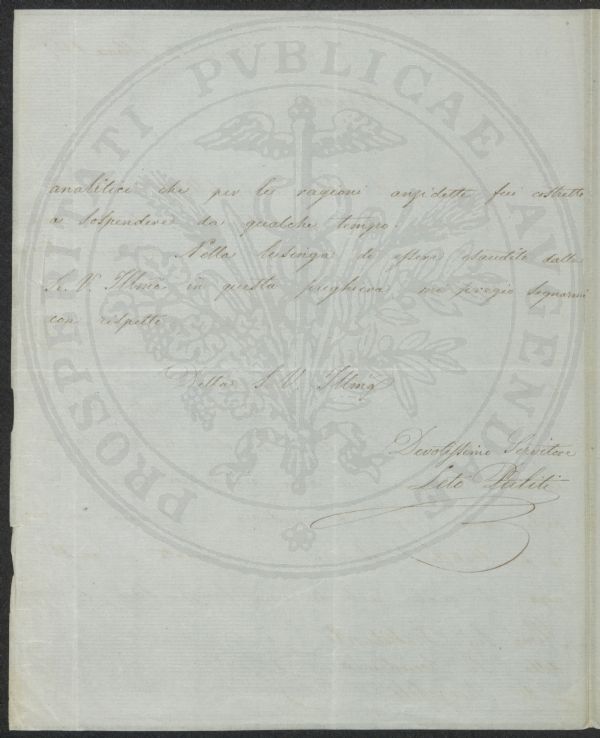 PROSPERITATI PVBLICAE AVGENDAE
analitici che per le ragioni anzidette fui costretto
a sospendere da qualche tempo.
Nella lusinga di essere esaudito dalla
S. V. Illma in questa preghiera me pregio segnarmi
con rispetto
Della S. V. Illma
Devotissimo Servitore